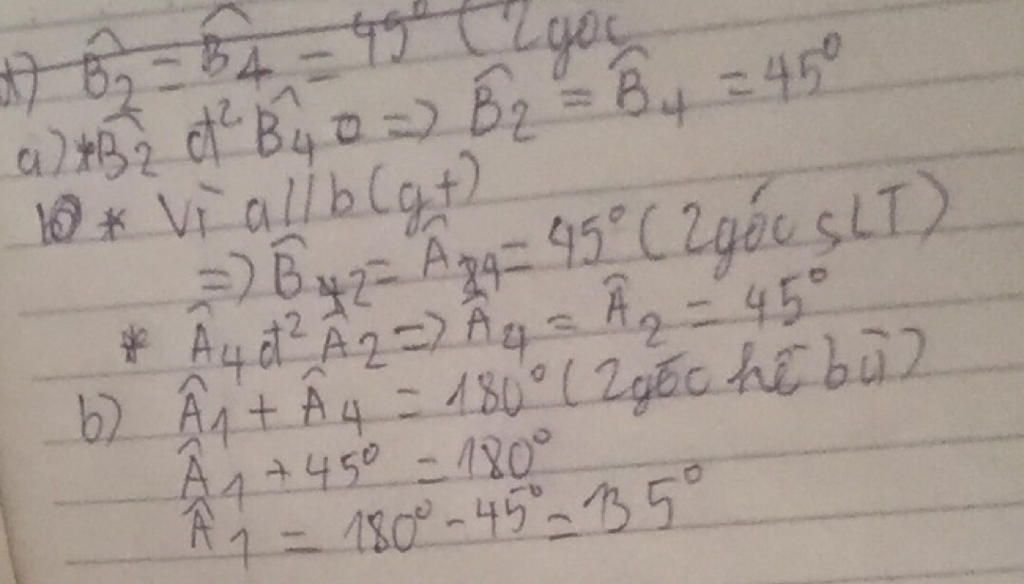 a) B̂₂ = B̂₄ = 45° (2góc
a) * B̂₂ đ² B̂₄ => B̂₂ = B̂₄ = 45°
* Vì a//b (gt)
=> B̂₂ = Â₄ = 45° (2góc SLT)
* Â₄ đ² Â₂ => Â₄ = Â₂ = 45°
b) Â₁ + Â₄ = 180° (2góc kề bù)
Â₁ + 45° = 180°
Â₁ = 180° - 45° = 135°